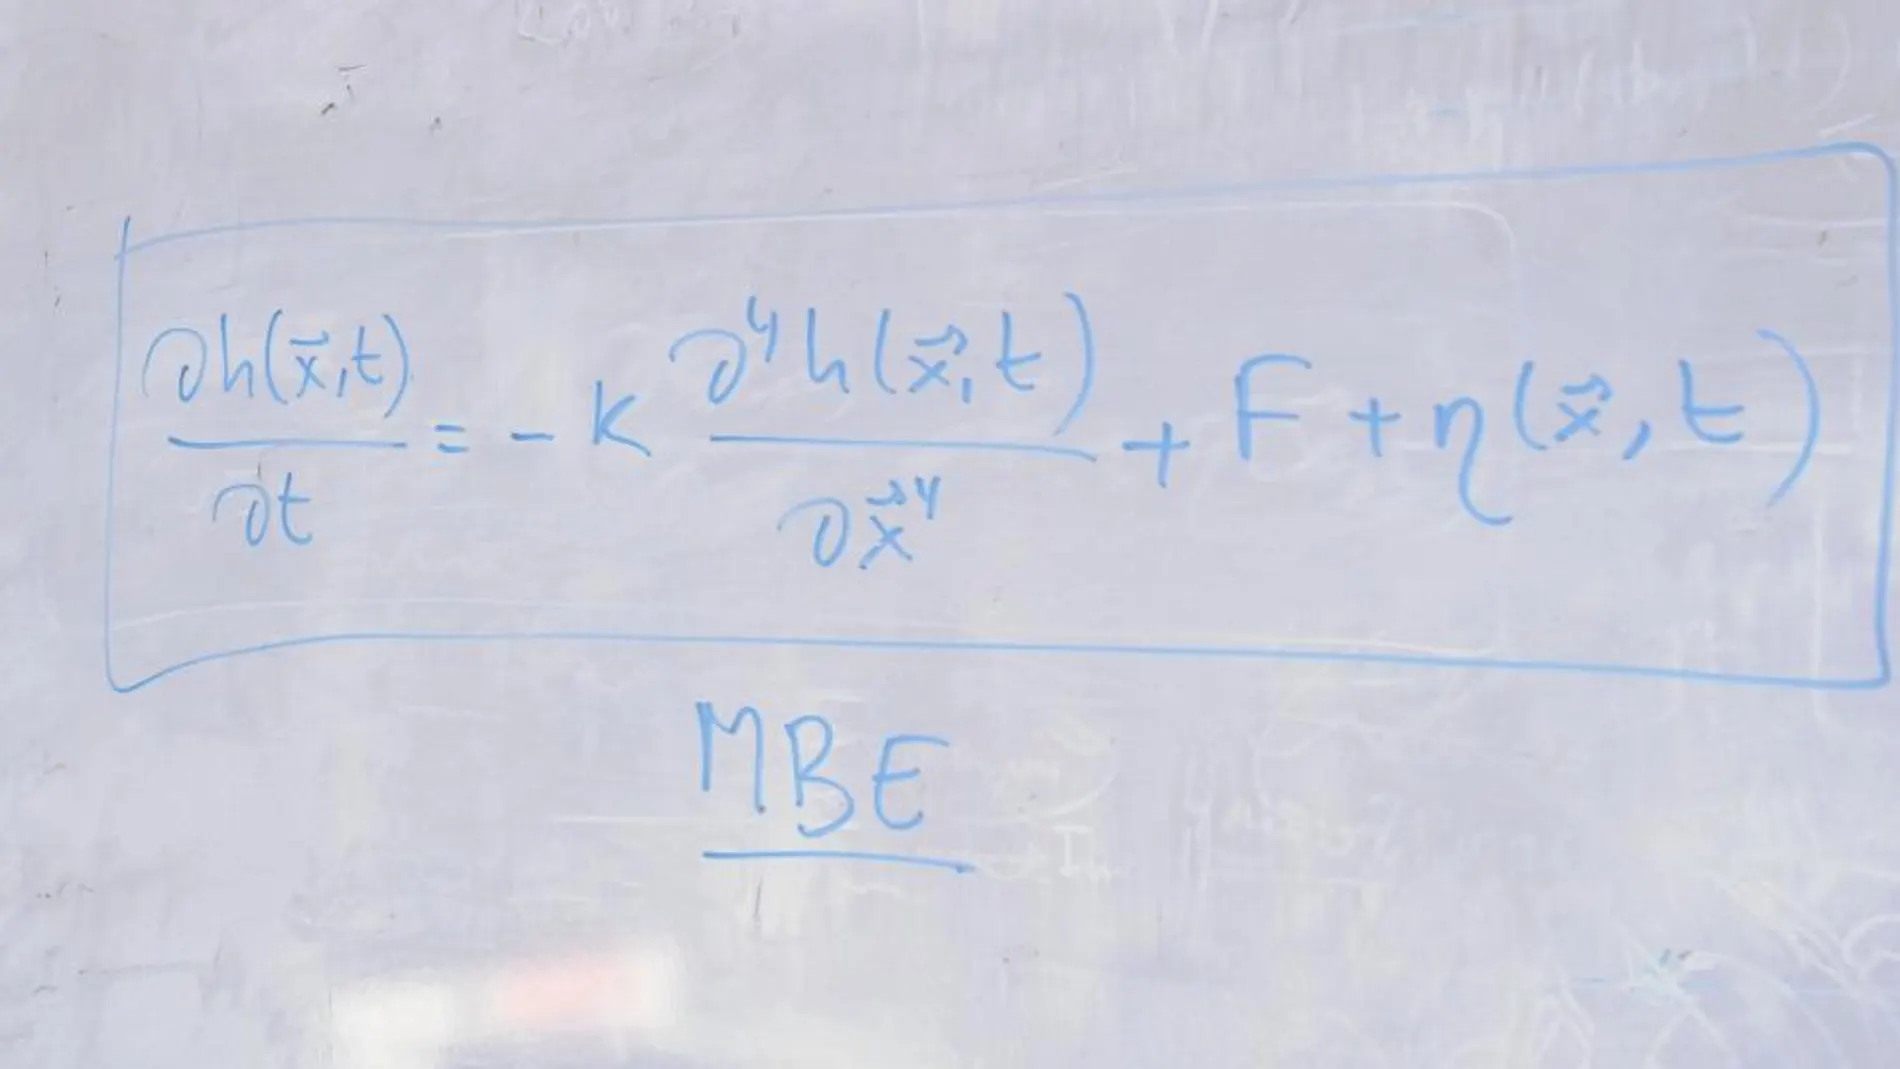 ∂h(x⃗,t)/∂t = -K ∂⁴h(x⃗,t)/∂x⃗⁴ + F + η(x⃗,t)
MBE